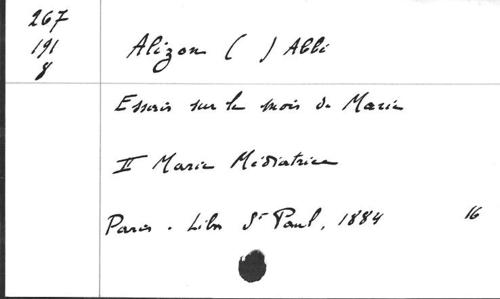 267
191
8
Alizon ( ) Abbé
Essais sur le mois de Marie
II Marie Médiatrice
Paris. Libr St Paul, 1884 16